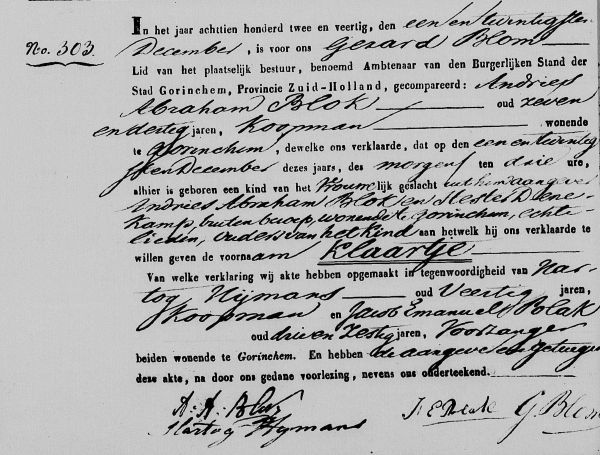 In het jaar achttien honderd twee en veertig, den een en twintigsten
No. 303.
December, is voor ons Gerard Blom
Lid van het plaatselijk bestuur, benoemd Ambtenaar van den Burgerlijken Stand der
Stad Gorinchem, Provincie Zuid-Holland, gecompareerd: Andries
Abraham Blok oud zeven
en dertig jaren, Koopman wonende
te Gorinchem, dewelke ons verklaarde, dat op den een en twintig
sten December dezes jaars, des morgens ten drie ure,
alhier is geboren een kind van het Vrouwelijk geslacht uit hem aangever
Andries Abraham Blok en Hester Dene
kamp, buiten beroep, wonende te Gorinchem, echte
lieden, ouders van het kind aan hetwelk hij ons verklaarde te
willen geven de voornaam Klaartje
Van welke verklaring wij akte hebben opgemaakt in tegenwoordigheid van Har
tog Nijmans oud Veertig jaren,
Koopman en Jacob Emanuel Polak
oud drie en Zestig jaren, Voorzanger
beiden wonende te Gorinchem. En hebben de aangever en getuigen
deze akte, na door ons gedane voorlezing, nevens ons onderteekend.
A. A. Blok J. E. Polak G. Blom
Hartog Nymans